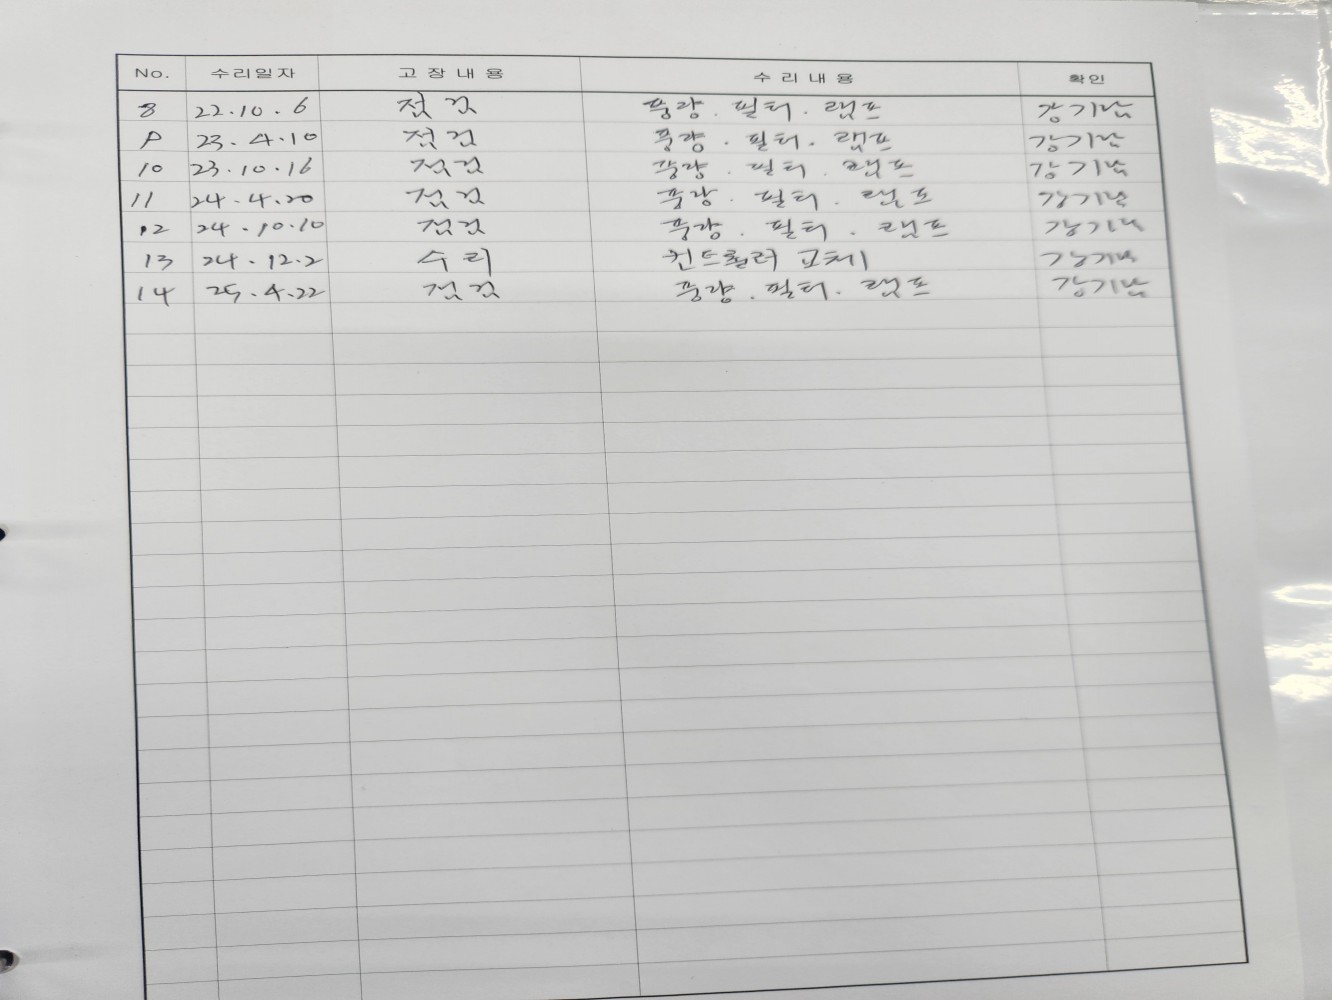 No. 수리일자 고장내용 수리내용 확인
8 22.10.6 점검 풍량.필터.램프 강기남
9 23.4.10 점검 풍량.필터.램프 강기남
10 23.10.16 점검 풍량.필터.램프 강기남
11 24.4.20 점검 풍량.필터.램프 강기남
12 24.10.10 점검 풍량.필터.램프 강기남
13 24.12.2 수리 컨트롤러 교체 강기남
14 25.4.22 점검 풍량.필터.램프 강기남